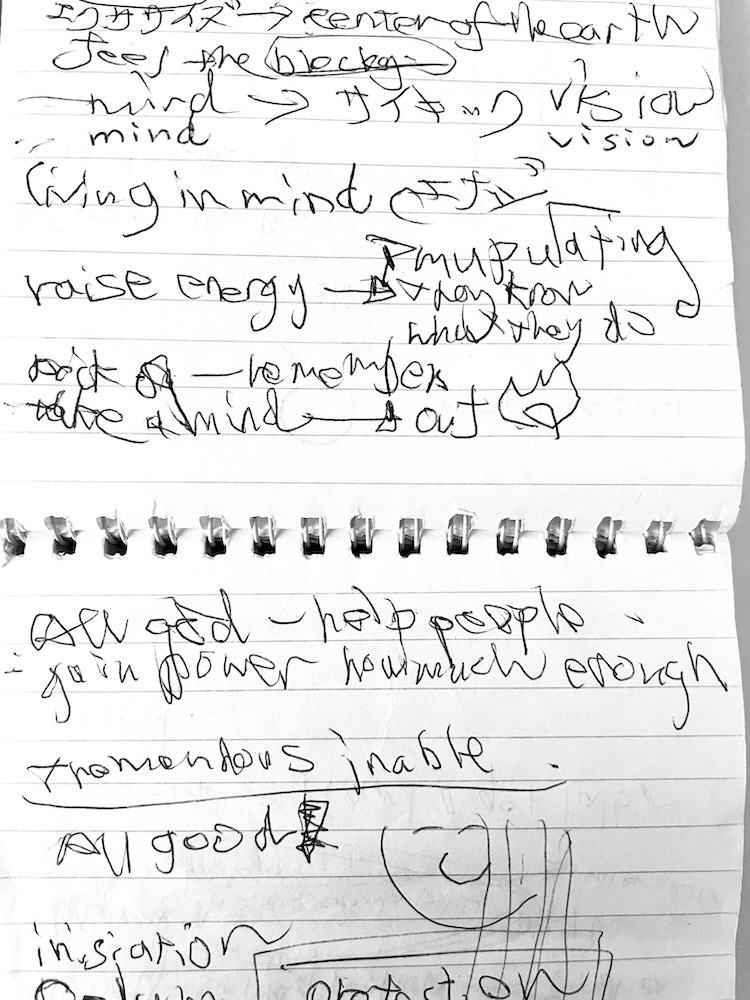 エクササイズ → center of the earth
feel the blockg
mind → サイキック vision
mind vision
living in mind
mupulating
raise energy → they know
what they do
remember
mind → out
All god - help people
gain power how much enough
tremendous inable.
All good
insiration
protection